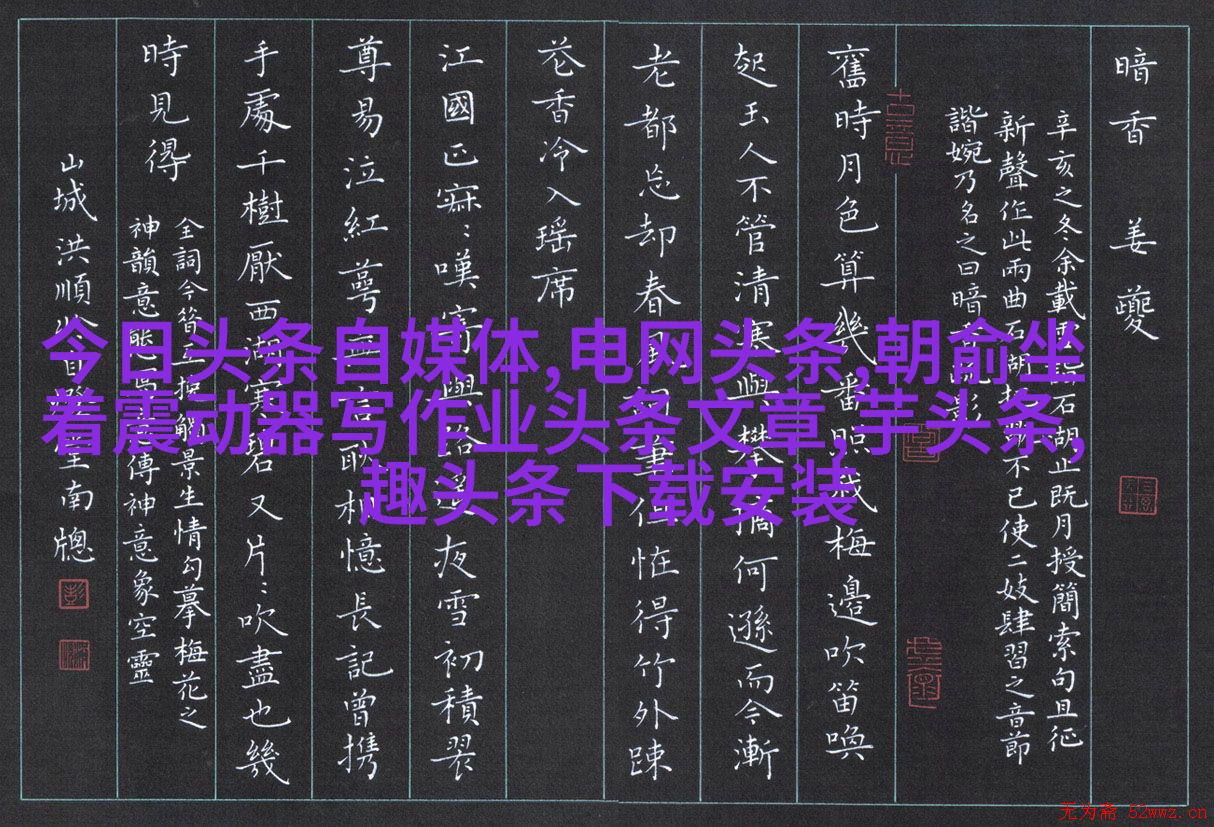 暗香 姜夔
辛亥之冬余載雪
石湖止既月授簡索句且征
新聲作此兩曲石湖
不已使二妓肆習之音節
諧婉乃名之曰暗
舊時月色算幾番照我梅邊吹笛喚
起玉人不管清寒與攀摘何遜而今漸
老都忘却春風詞筆但怪得竹外疎
花香冷入瑶席
江國正寂:嘆寄與路遥夜雪初積翠
尊易泣紅萼無言耿相憶長記曾携
手處千樹壓西湖寒碧又片:吹盡也幾
時見得
全詞今昔
景生情勾摹梅花之
神韻意態
傳神意象空靈
山城洪順
南牕
今日头条自媒体,电网头条,朝俞坐
着震动器写作业头条文章,芋头条,
趣头条下载安装
无为斋 52wwz.cn